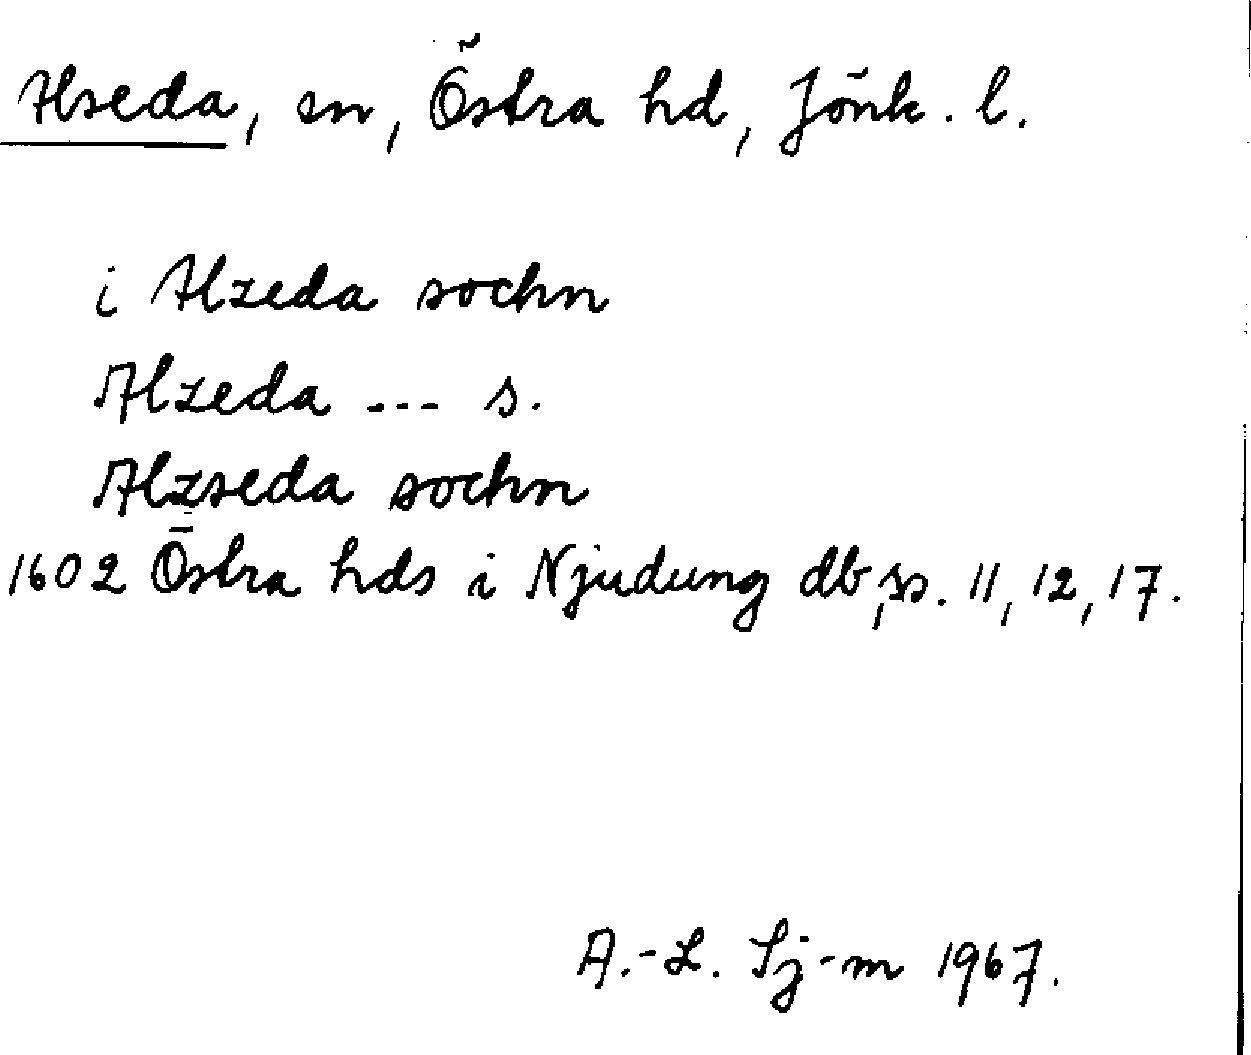 Alseda, sn, Östra hd, Jönk. l.
i Alzeda sochn
Alzeda --- s.
Alzseda sochn
1602 Östra hds i Njudung db, ss. 11, 12, 17.
A.-L. Sj-m 1967.